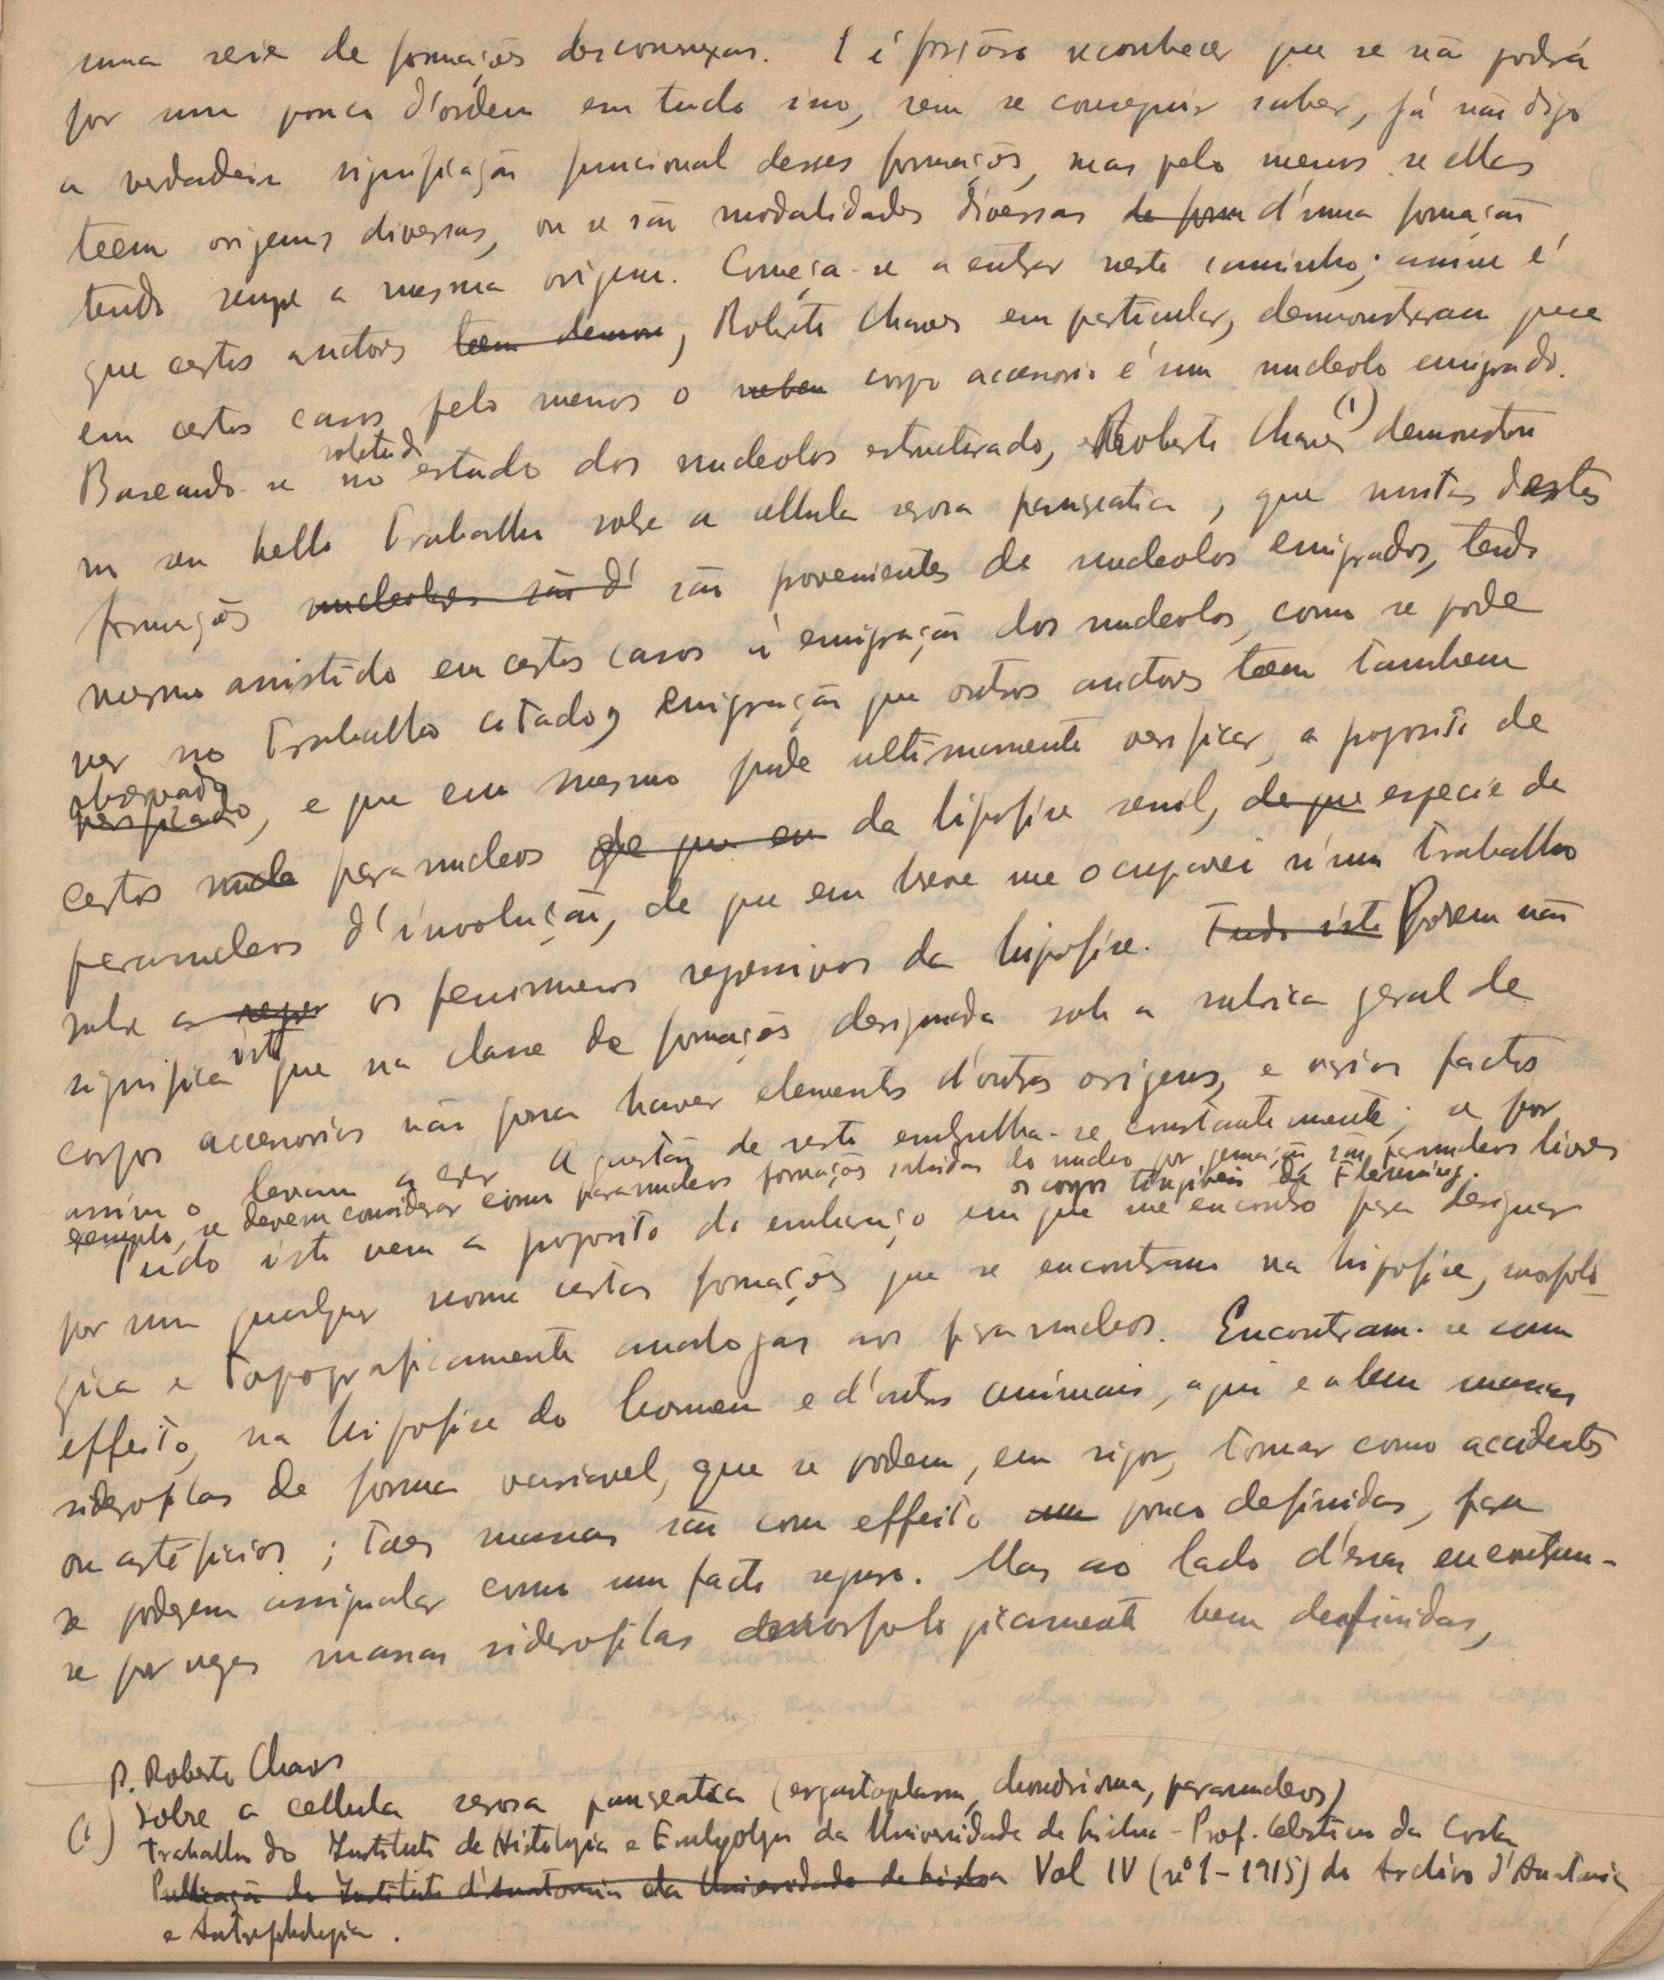 uma serie de formações desconnexas. E é forçoso reconhecer que se não podrá
por um pouco d'ordem em tudo isso, sem se conseguir saber, já não digo
a verdadeira significação funcional desses formações, mas pelo menos se ellas
teem origens diversas, ou se são modalidades diversas de form d'uma formação
tendo sempre a mesma origem. Começa-se a entrar neste caminho; assim é
que certos auctores teem demon, Roberto Chaves em particular, demonstraram que
em certos casos pelo menos o corpo accessorio é um nucleolo emigrado.
Baseando-se sobretudo no estudo dos nucleolos estructurado, Roberto Chaves (1) demonstrou
no seu bello trabalho sobre a cellula serosa pancreatica, que muitas destas
formações nucleolos são d' são provenientes de nucleolos emigrados, tendo
mesmo assistido em certos casos á emigração dos nucleolos, como se pode
ver no trabalho citado, emigração que outros auctores teem tambem
observado
verificado, e que eu mesmo pude ultimamente verificar, a proposito de
certos nucle paranucleos de que eu da hipofise senil, de que especie de
paranucleos d'involução, de que em breve me occuparei n'um trabalho
sobre as regres os fenomenos regressivos da hipofise. Tudo isto Porem não
significa isto que na classe de formações designada sob a rubrica geral de
corpos accessorios não possa haver elementos d'outras origens, e varios factos
assim o levam a crer. A questão de resto embrulha-se constantemente; se por
exemplo, se devem considerar como paranucleos formações sahidas do nucleo por gemação são paranucleos livres
os corpos tingiveis de Flemming.
Tudo isto vem a proposito do embaraço em que me encontro para designar
por um qualquer nome certas formações que se encontram na hipofise, morfolo-
gica e topograficamente analogas aos paranucleos. Encontram-se com
effeito, na hipofise do homem e d'outros animais, aqui e alem massas
siderofilas de forma variavel, que se podem, em rigor, tomar como accidentes
ou artificios; taes massas são com effeito um pouco definidas, para
se poderem assignalar como um facto seguro. Mas ao lado d'essas encontram-
se por vezes massas siderofilas morfologicamente bem definidas,
P. Roberto Chaves
(1) Sobre a cellula serosa pancreatica (ergastoplasma, chondrioma, paranucleos)
Trabalho do Instituto de Histologia e Embryologia da Universidade de Lisboa - Prof. Celestino da Costa
Publicação do Instituto d'Anatomia da Universidade de Lisboa Vol IV (nº 1 - 1915) do Archivo d'Anatomia
e Antropologia.